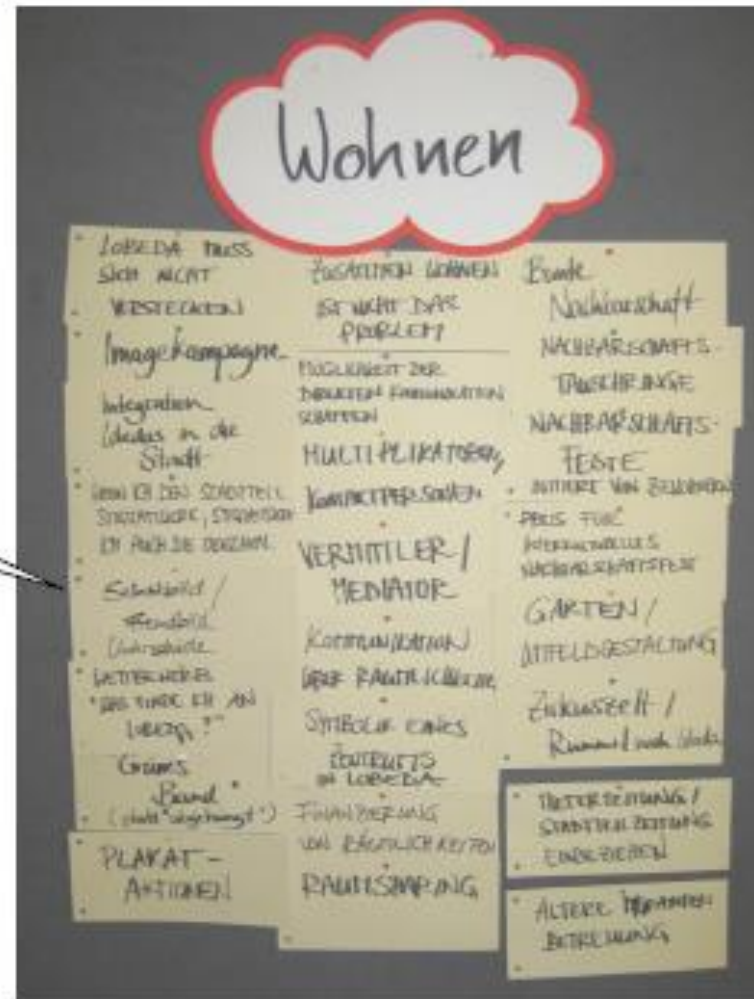 Wohnen
LOBEDA MUSS
SICH NICHT
VERSTECKEN
Imagekampagne
Integration
Lobedas in die
Stadt
WENN ICH DEN STADTTEIL
ICH AUCH DIE
Selbstbild /
Fremdbild
Unterschiede
WETTBEWERB
"DAS FINDE ICH AN
LOBEDA"
Grünes
Band
(statt "abgehängt")
PLAKAT-
AKTIONEN
ZUSAMMEN WOHNEN
IST NICHT DAS
PROBLEM
MÖGLICHKEIT DER
DIREKTEN KOMMUNIKATION
SCHAFFEN
MULTIPLIKATOREN,
KONTAKTPERSONEN
VERMITTLER /
MEDIATOR
KOMMUNIKATION
ÜBER
SYMBOLIK EINES
ZENTRUMS
IN LOBEDA
FINANZIERUNG
VON RÄUMLICHKEITEN
RAUMSHARING
Bunte
Nachbarschaft
NACHBARSCHAFTS-
TAUSCHRINGE
NACHBARSCHAFTS-
FESTE
INITIIERT VON BEWOHNERN
PREIS FÜR
INTERKULTURELLES
NACHBARSCHAFTSFEST
GARTEN /
UMFELDGESTALTUNG
Zirkuszelt /
Rummel nach Lobeda
MIETERZEITUNG /
STADTTEILZEITUNG
EINBEZIEHEN
ÄLTERE MIGRANTEN
BETREUUNG